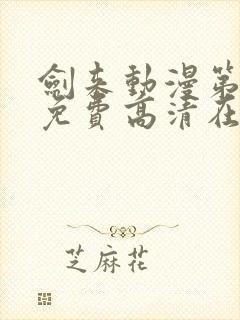 劍來動漫第
免費高清在
芝麻花